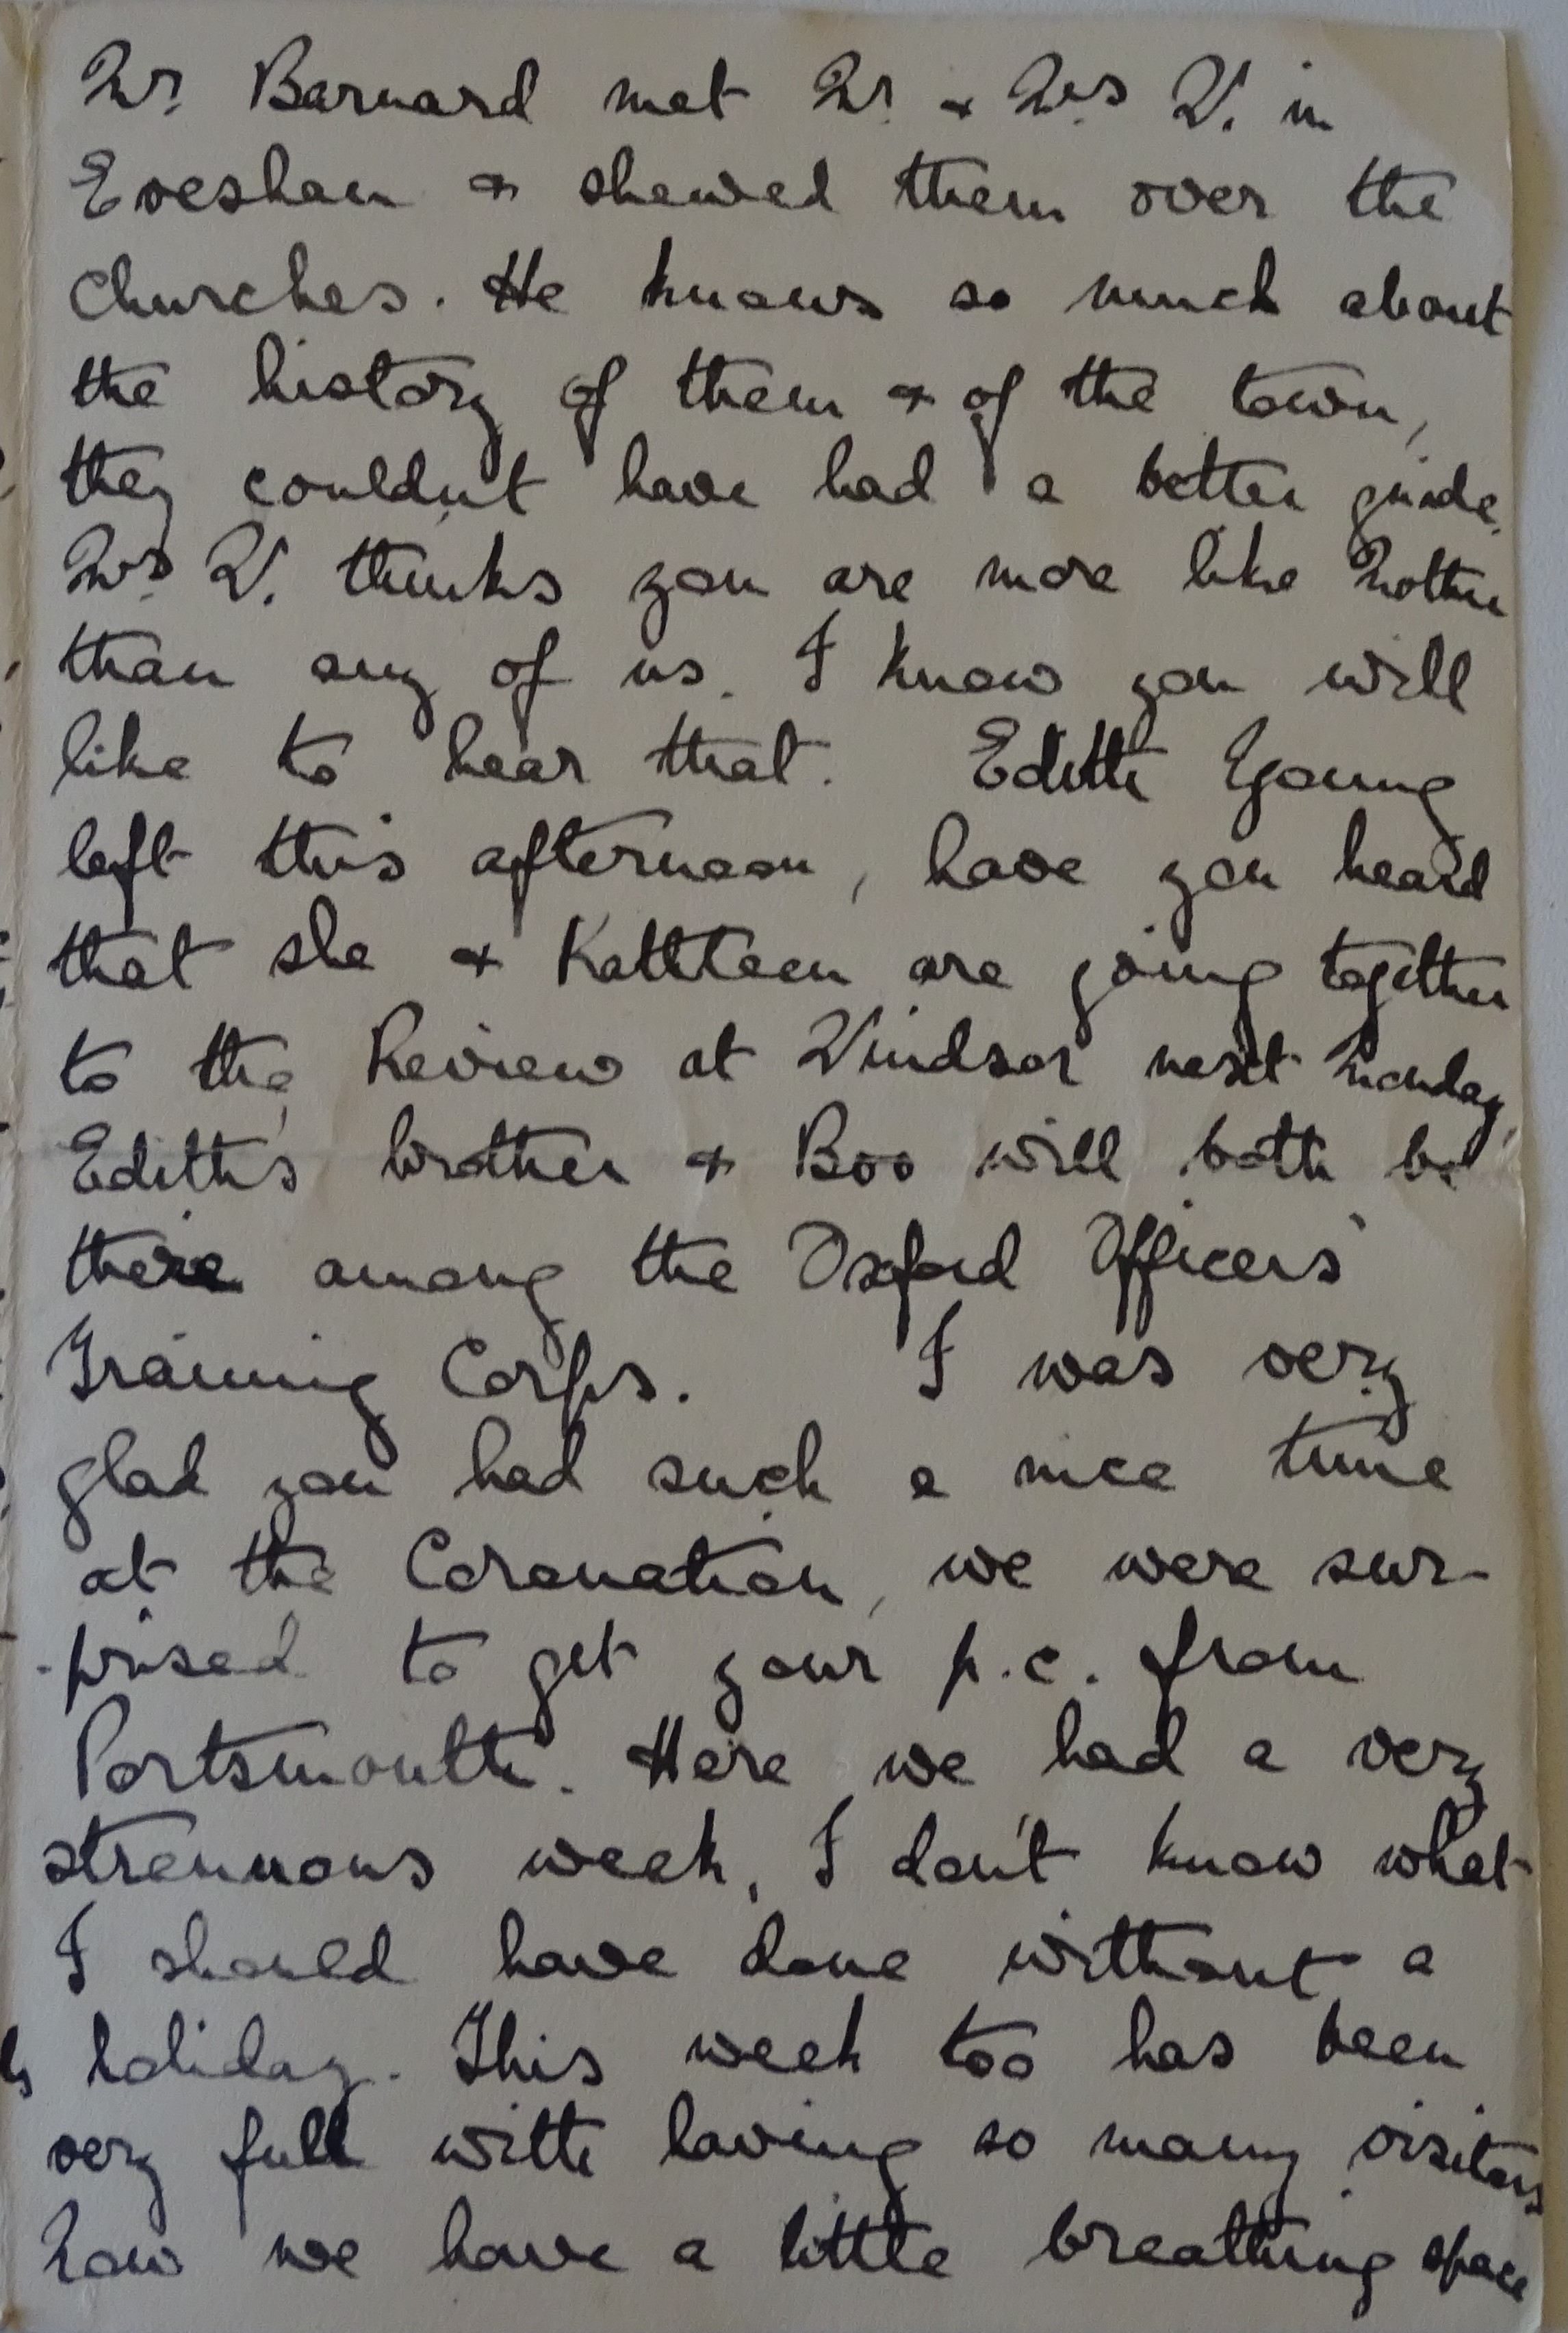 Mr. Barnard met Mr. & Mrs V. in
Evesham & shewed them over the
Churches. He knows so much about
the history of them & of the town,
they couldn't have had a better guide.
Mrs. V. thinks you are more like Mother
than any of us. I know you will
like to hear that. Edith Young
left this afternoon, have you heard
that she & Kathleen are going together
to the Review at Windsor next Monday,
Edith's brother & Boo will both be
there among the Oxford Officers'
Training Corps. I was very
glad you had such a nice time
at the Coronation, we were sur-
-prised to get your p.c. from
Portsmouth. Here we had a very
strenuous week, I don't know what
I should have done without a
holiday. This week too has been
very full with having so many visitors
Now we have a little breathing space